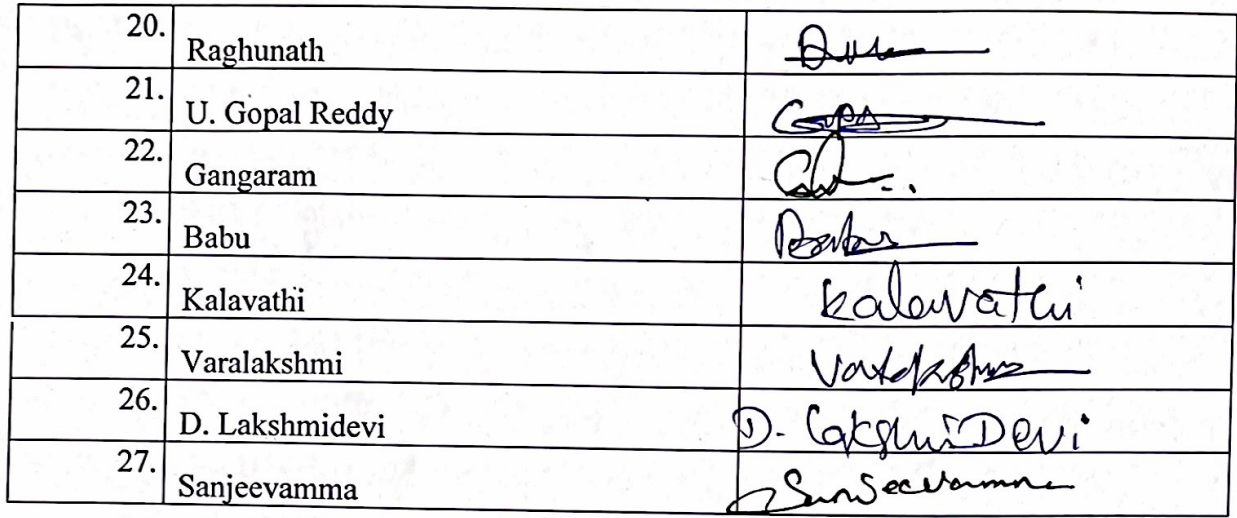 20. Raghunath
21. U. Gopal Reddy
22. Gangaram
23. Babu Babu
24. Kalavathi Kalavathi
25. Varalakshmi
26. D. Lakshmidevi D. LakshmiDevi
27. Sanjeevamma Sanjeevamma